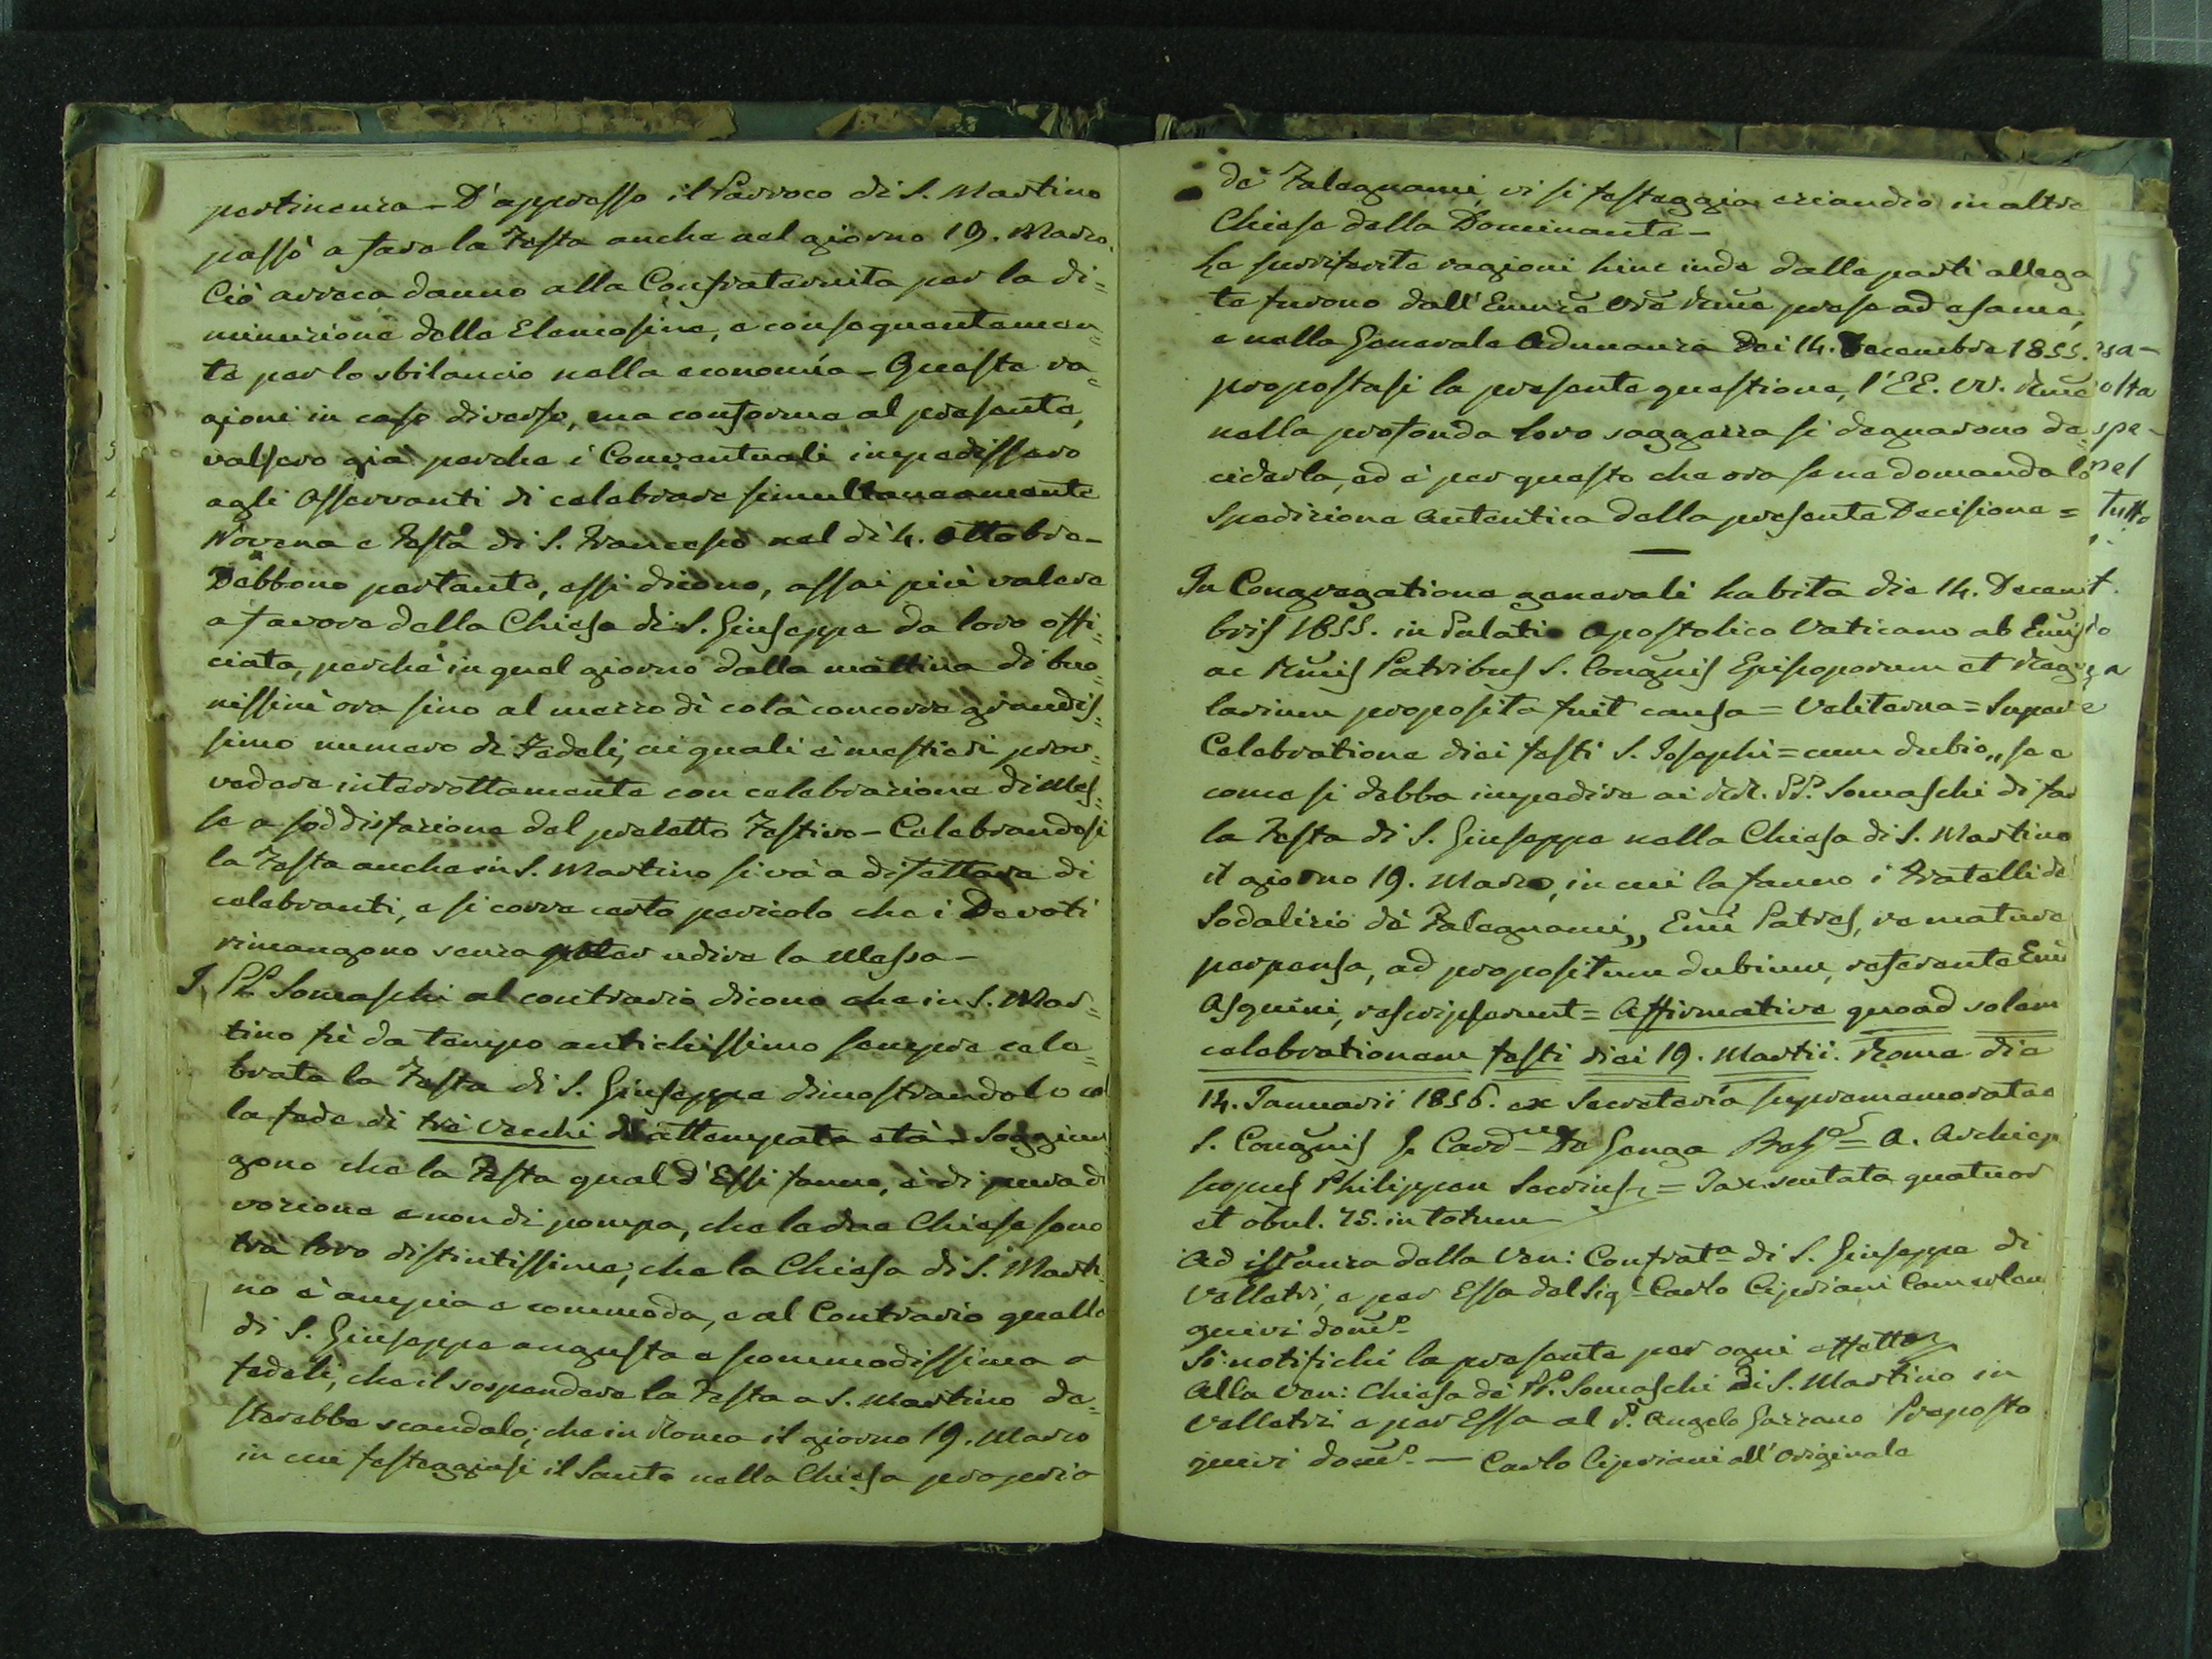 pertinenza - D'appresso il Parroco di S. Martino
passò a fare la Festa anche nel giorno 19. Marzo.
Ciò arreca danno alla Confraternita per la di=
minuzione delle Elemosine, e conseguentemen=
te per lo sbilancio nella economía - Queste ra=
gioni in caso diverso, ma conforme al presente,
valsero già perche i Conventuali impedissero
agli Osservanti di celebrare simultaneamente
Novena e Festa di S. Francesco nel dì 4. Ottobre -
Debbono pertanto, essi dicono, assai più valere
a favore della Chiesa di S. Giuseppe da loro offi=
ciata, perchè in quel giorno dalla mattina di buo=
nissim' ora sino al mezzo dì colà concorre grandis=
simo numero di Fedeli, ai quali è mestieri prov=
vedere interrottamente con celebrazione di Mes=
se a soddisfazione del precetto Festivo - Celebrandosi
la Festa anche in S. Martino si và a difettare di
celebranti, e si corre certo pericolo che i Devoti
rimangono senza poter udire la Messa -
I. PP. Somaschi al contrario dicono che in S. Mar=
tino fù da tempo antichissimo sempre cele=
brata la Festa di S. Giuseppe dimostrandolo col
la fede di trè vecchi di attempata età - Soggiun
gono che la Festa qual d'Essi fanno, è di pura di
vozione e non di pompa, che le due Chiese sono
trà loro distintissime; che la Chiesa di S. Marti
no è ampia e commoda, e al Contrario quella
di S. Giuseppe angusta e scommodissima a
fedeli, che il sospendere la Festa a S. Martino de=
sterebbe scandalo; che in Roma il giorno 19. Marzo
in cui festeggiasi il Santo nella Chiesa propria
de' Falegnami, vi si festeggia eziandio in altre
Chiese della Dominante -
Le surriferite ragioni hinc inde dalle parti allega
te furono dall'Emñze Vrẽ Rm̃e prese ad esame,
e nella Generale Adunanza Dei 14. Decembre 1855.
propostasi la presente questione, l'EE. VV. Rm̃e
nella profonda loro saggezza si degnarono de
ciderla, ed è per questo che ora se ne domanda la
Spedizione Autentica della presente Decisione =
In Congregatione generali habita die 14. Decem
bris 1855. in Palatio Apostolico Vaticano ab Em̃is
ac Rm̃is Patribus S. Congñis Episcoporum et Regu
larium proposita fuit causa = Veliterna = Super
Celebratione diei festi S. Josephi = cum dubio „ se e
come si debba impedire ai RR. PP. Somaschi di far
la Festa di S. Giuseppe nella Chiesa di S. Martino
il giorno 19. Marzo, in cui la fanno i Fratelli del
Sodalizio dè Falegnami „ Em̃i Patres, re mature
perpensa, ad propositum dubium, referente Em̃o
Asquini, rescripserunt = Affirmative quoad solam
celebrationem festi diei 19. Martii. Romæ die
14. Januarii 1856. ex Secretaría supramemoratae
S. Congñis G. Card. Della Genga Pref. = A. Archiep
scopus Philippen Secrius = Tax. scutata quatuor
et obul. 75. in totum -
Ad istanza della Ven: Confratª di S. Giuseppe di
Velletri, e per Essa del Sig. Carlo Cipriani Camerlen
quivi dom.
Si notifichi la presente per ogni effetto
Alla Ven: Chiesa de' PP. Somaschi di S. Martino in
Velletri e per Essa al P. Angelo Gazzano Preposto
quivi dom. — Carlo Cipriani all'originale
15
esa-
osta
spe-
pel
tutto